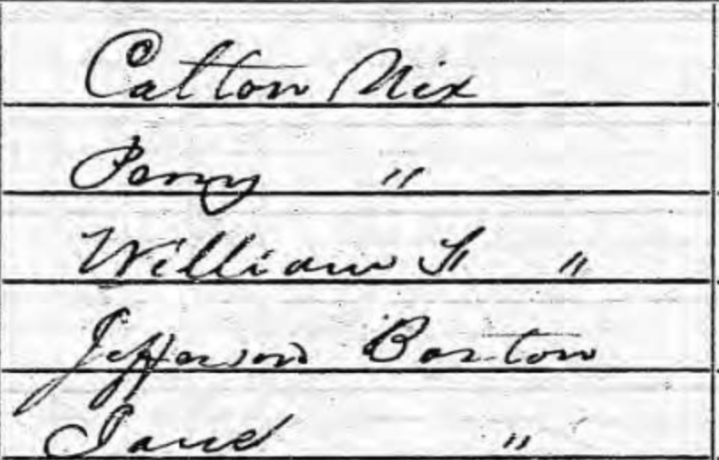 Calton Nix
Perry "
William H "
Jefferson Barton
Jane "